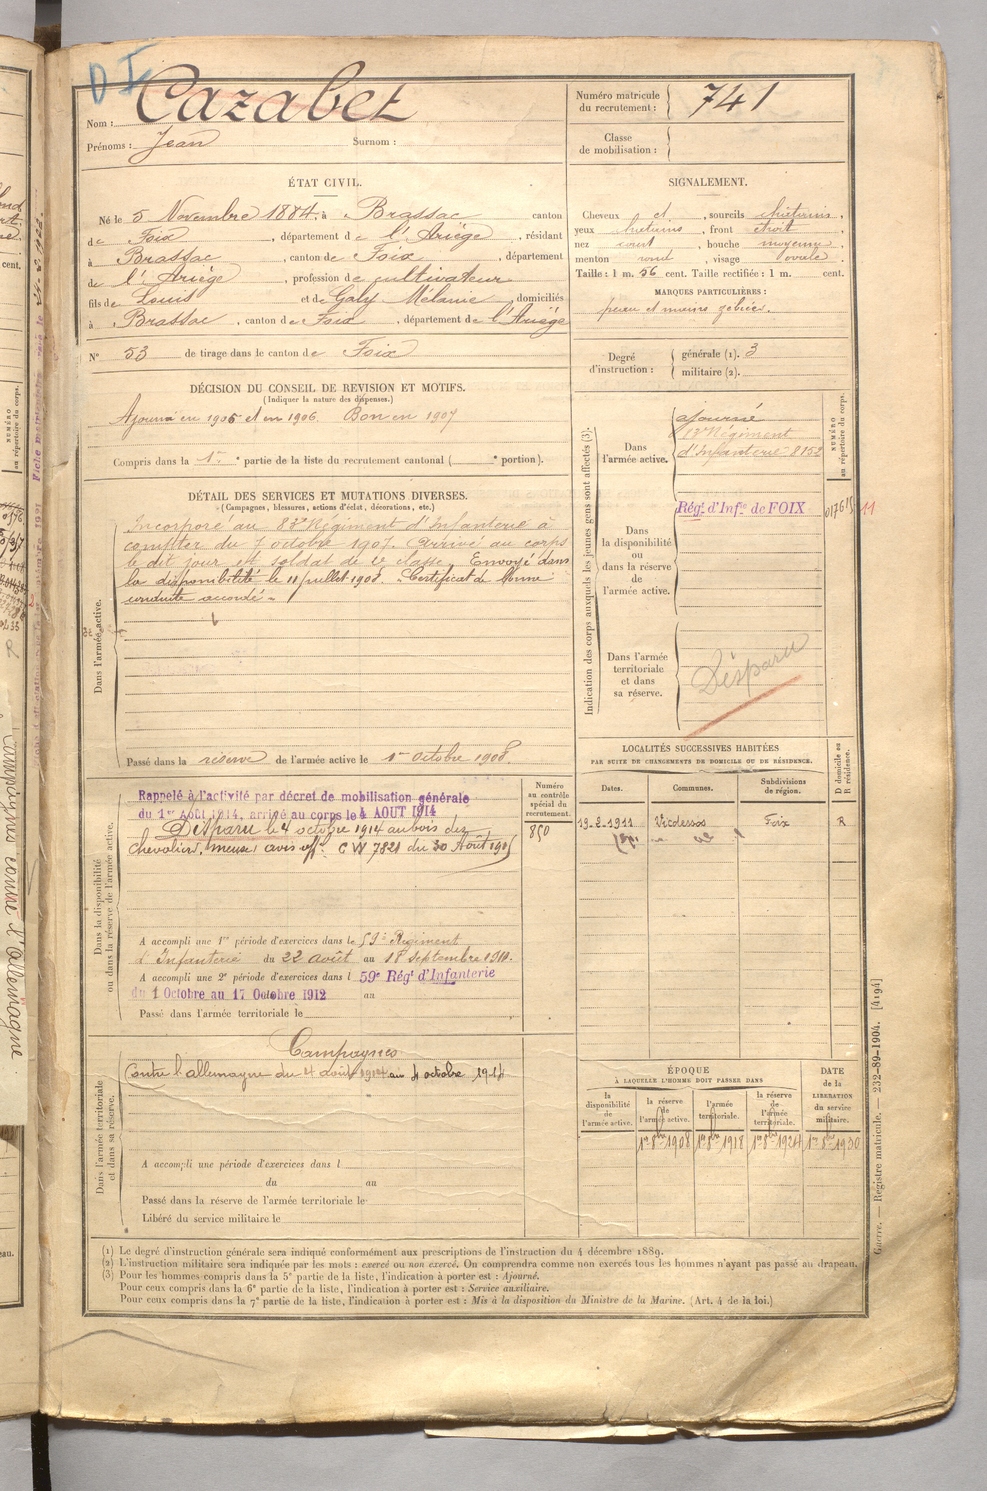 D I
Nom : Cazabet
Prénoms : Jean Surnom :
Numéro matricule du recrutement : 741
Classe de mobilisation :
ÉTAT CIVIL.
Né le 5 Novembre 1884, à Brassac canton
de Foix, département de l'Ariège, résidant
à Brassac, canton de Foix, département
de l'Ariège, profession de cultivateur
fils de Louis et de Galy Mélanie, domiciliés
à Brassac, canton de Foix, département de l'Ariège
N° 53 de tirage dans le canton de Foix
SIGNALEMENT.
Cheveux et , sourcils châtains,
yeux châtains, front étroit,
nez court, bouche moyenne,
menton rond, visage ovale.
Taille : 1 m. 56 cent. Taille rectifiée : 1 m. cent.
MARQUES PARTICULIÈRES :
peau et mains
Degré d'instruction : générale (1). 3
militaire (2).
DÉCISION DU CONSEIL DE REVISION ET MOTIFS.
(Indiquer la nature des dispenses.)
Ajourné en 1905 et en 1906. Bon en 1907
Compris dans la 1re partie de la liste du recrutement cantonal ( e portion).
DÉTAIL DES SERVICES ET MUTATIONS DIVERSES.
(Campagnes, blessures, actions d'éclat, décorations, etc.)
Dans l'armée active.
Incorporé au 83e Régiment d'Infanterie à
compter du 7 octobre 1907. Arrivé au corps
le dit jour et soldat de 2e classe. Envoyé dans
la disponibilité le 11 juillet 1908. Certificat de bonne
conduite accordé.
Passé dans la réserve de l'armée active le 1er octobre 1908.
Indication des corps auxquels les jeunes gens sont affectés (3).
NUMÉRO au répertoire du corps.
Dans l'armée active.
ajourné
83e Régiment
d'Infanterie 8152
Dans la disponibilité ou dans la réserve de l'armée active.
Régt. d'Infie de FOIX 11
Dans l'armée territoriale et dans sa réserve.
Disparu
LOCALITÉS SUCCESSIVES HABITÉES
PAR SUITE DE CHANGEMENTS DE DOMICILE OU DE RÉSIDENCE.
Dates. Communes. Subdivisions de région. D domicile ou R résidence.
19-2-1911 Vicdessos Foix R
Dans la disponibilité ou dans la réserve de l'armée active.
Numéro au contrôle spécial du recrutement.
850
Rappelé à l'activité par décret de mobilisation générale
du 1er AOUT 1914, arrivé au corps le 4 AOUT 1914
Disparu le 4 octobre 1914 au bois des
Chevaliers, meuse, avis off. C W 7821 du 30 Août 1915
A accompli une 1re période d'exercices dans le 59e Régiment
d'Infanterie du 22 août au 18 septembre 1910.
A accompli une 2e période d'exercices dans l 59e Régt d'Infanterie
du 1 Octobre au 17 Octobre 1912 au
Passé dans l'armée territoriale le
Dans l'armée territoriale et dans sa réserve.
Campagnes
Contre l'allemagne du 4 août 1914 au 4 octobre 1914
A accompli une période d'exercices dans l
du au
Passé dans la réserve de l'armée territoriale le
Libéré du service militaire le
ÉPOQUE
À LAQUELLE L'HOMME DOIT PASSER DANS
la disponibilité de l'armée active. la réserve de l'armée active. l'armée territoriale. la réserve de l'armée territoriale. DATE de la LIBÉRATION du service militaire.
1er 8bre 1908 1er 8bre 1918 1er 8bre 1924 1er 8bre 1930
(1) Le degré d'instruction générale sera indiqué conformément aux prescriptions de l'instruction du 4 décembre 1889.
(2) L'instruction militaire sera indiquée par les mots : exercé ou non exercé. On comprendra comme non exercés tous les hommes n'ayant pas passé au drapeau.
(3) Pour les hommes compris dans la 5e partie de la liste, l'indication à porter est : Ajourné.
Pour ceux compris dans la 6e partie de la liste, l'indication à porter est : Service auxiliaire.
Pour ceux compris dans la 7e partie de la liste, l'indication à porter est : Mis à la disposition du Ministre de la Marine. (Art. 4 de la loi.)
Guerre. — Registre matricule. — 232-89-1904. [4194]
Campagnes contre l'Allemagne